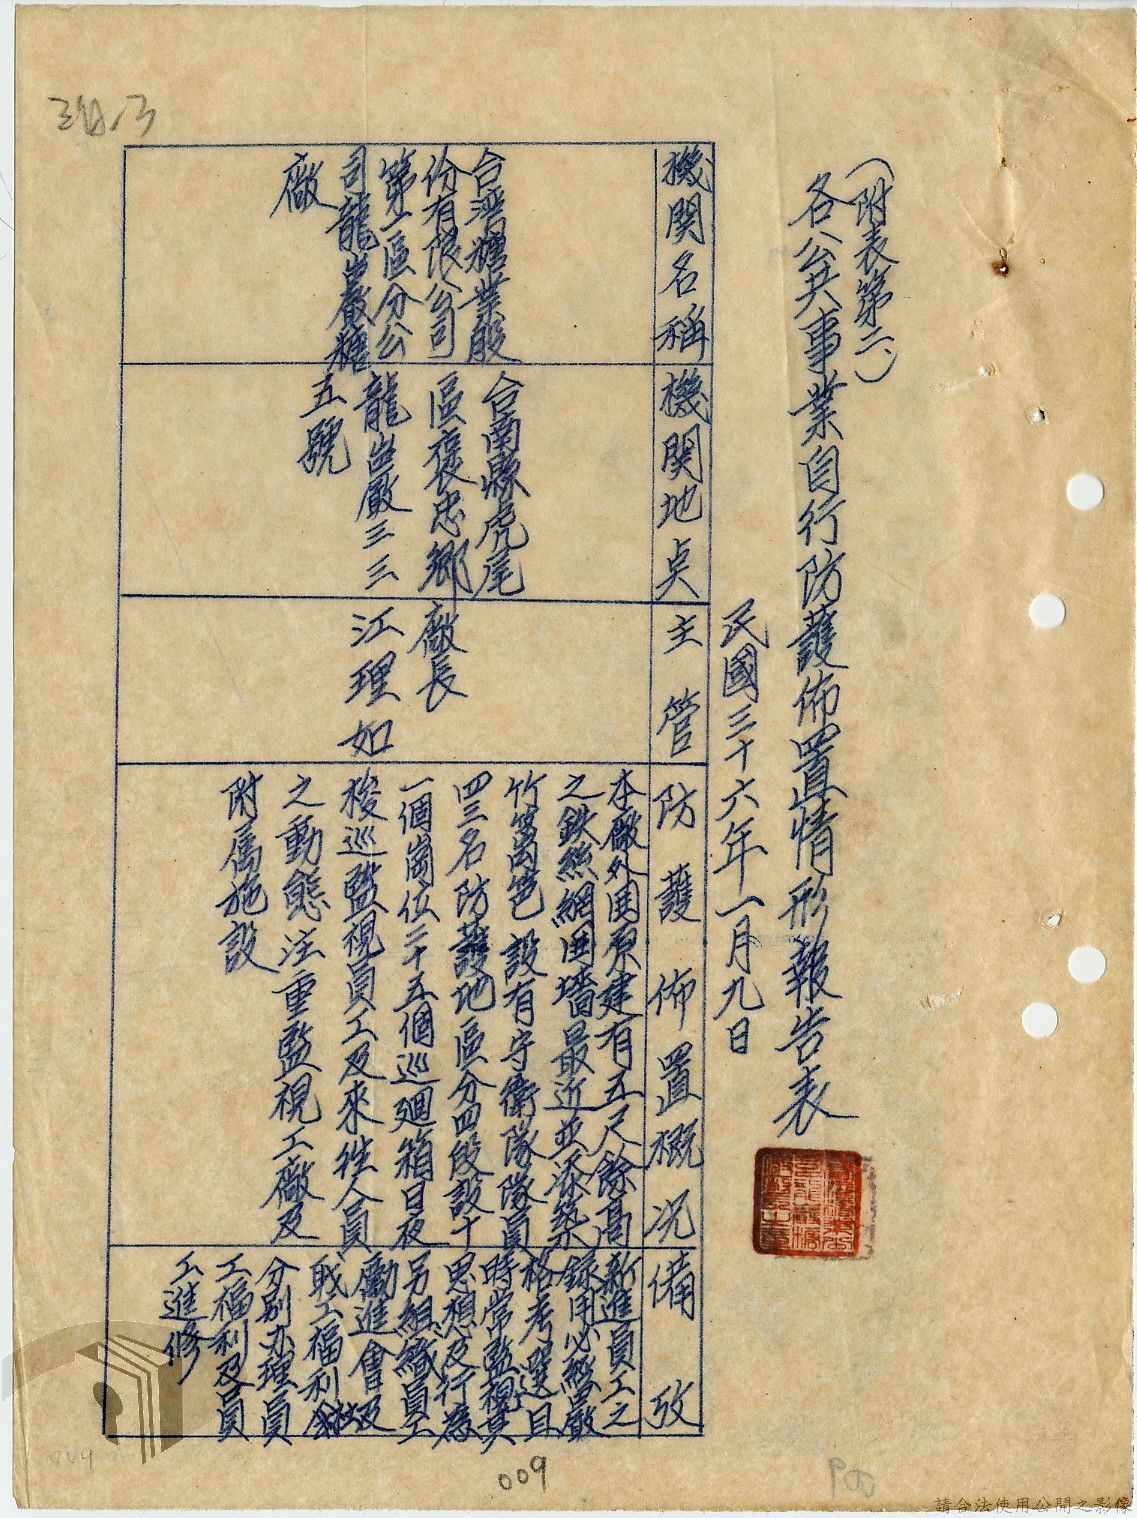 (附表第二、)
各公共事業自行防護佈置情形報告表
民國三十六年一月九日
機関名稱
機関地点
主管
防護佈置概况
備攷
台湾糖業股
份有限公司
第一區分公
司龍岩嚴糖
廠
台南縣虎尾
區褒忠鄉
龍岩嚴三三
五號
廠長
江理如
本廠外囲原建有五尺餘高
之鉄絲網囲墻最近並添築
竹篱笆設有守衛隊隊員
四三名防護地區分四段設十
一個崗位二十五個巡廻箱日夜
梭巡監視員工及來往人員
之動態注重監視工廠及
附属施設
新進員工之
錄用必經嚴
格考選且
時常監視其
思想及行為
另組織員工
勵進會及
戝工福利会
分別办理員
工福利及員
工進修
009
請合法使用公開之影像